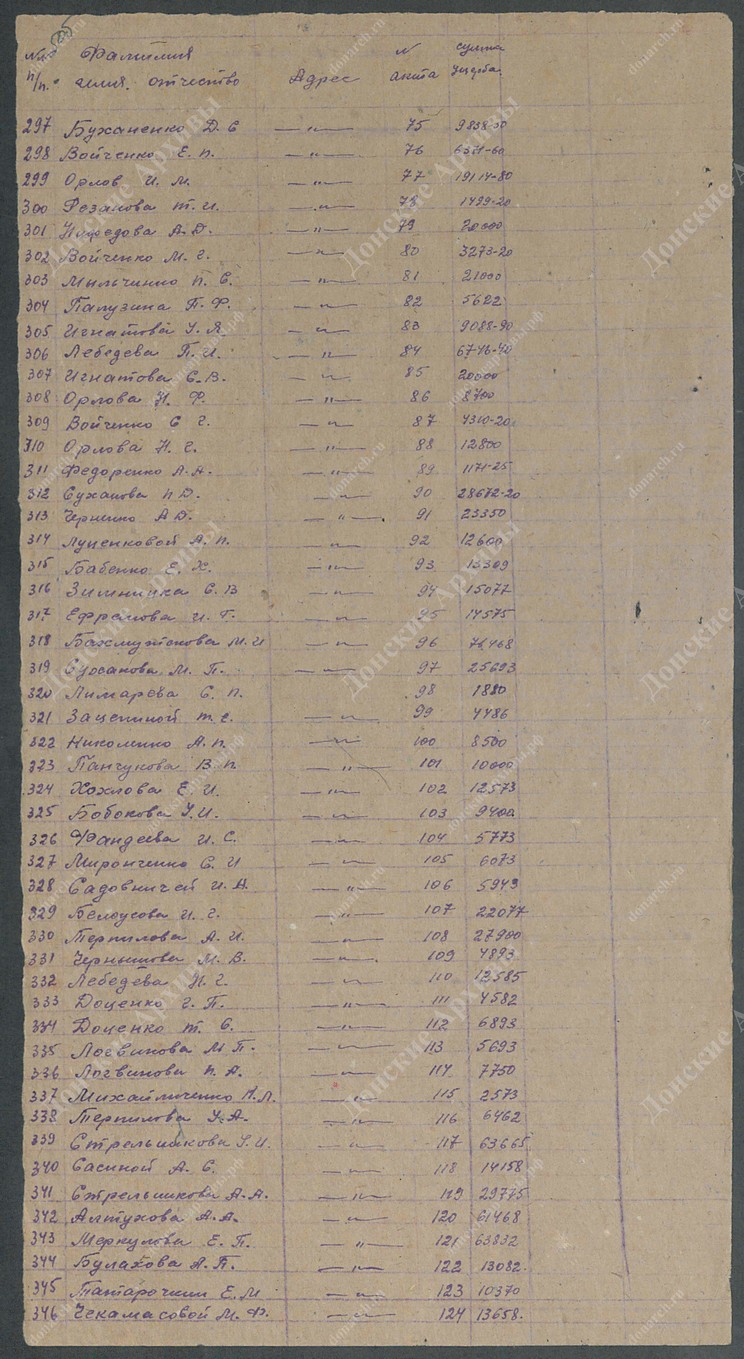 №№ Фамилия N сумма
п/п. имя. отчество Адрес акта ущерба.
297 Буханенко Д. С —〃— 75 9838-50
298 Войченко Е. п. —〃— 76 6371-60
299 Орлов И. М. —〃— 77 19114-80
300 Резанова т. и. —〃— 78 1499-20
301 А. Д. —〃— 79 20000
302 Войченко М. г. —〃— 80 3273-20
303 Мыльченко п. С. —〃— 81 21000
304 Палузина П. Ф. —〃— 82 5622
305 Игнатова У. Я. —〃— 83 9088-90
306 Лебедева П. И. —〃— 84 6746-40
307 Игнатова С. В. —〃— 85 20000
308 Орлова Н. Ф. —〃— 86 8700
309 Войченко С г. —〃— 87 4310-20
310 Орлова Н. г. —〃— 88 12800
311 Федоренко А. А. —〃— 89 1171-25
312 Суханова п Д. —〃— 90 28672-20
313 Черненко А Д. —〃— 91 23350
314 Луценковой А. п. —〃— 92 12600
315 Бабенко Е. Х. —〃— 93 13309
316 С. В —〃— 94 15077
317 Ефремова и. Г. —〃— 95 14575
318 М. И —〃— 96 71468
319 Суханова М. П. —〃— 97 25693
320 Лимарева С. п. 98 1880
321 Зацепиной т. с. —〃— 99 4486
322 Николенко А. п. —〃— 100 8500
323 Панчукова В. п. —〃— 101 10000
324 Хохлова Е. И. —〃— 102 12573
325 Бобокова У. И. —〃— 103 9400
326 Фандеева И. С. —〃— 104 5773
327 Миронченко С. И —〃— 105 6073
328 Садовничей И. А —〃— 106 5943
329 Белоусова И. г. —〃— 107 22077
330 Терпилова А. И. —〃— 108 27900
331 Чернышова М. В. —〃— 109 4893
332 Лебедева Н. г. —〃— 110 12585
333 Доценко г. П. —〃— 111 4582
334 Доценко т. С. —〃— 112 6893
335 Логвинова М П. —〃— 113 5693
336 Логвинова п. А. —〃— 114 7750
337 Михайличенко —〃— 115 2573
338 Терпилова У. А. —〃— 116 6462
339 Стрельникова У. И. —〃— 117 63665
340 Сасиной А. С. —〃— 118 14158
341 Стрельникова А. А. —〃— 119 29775
342 Алтухова А. А. —〃— 120 61468
343 Меркулова Е. П. —〃— 121 63832
344 Булахова А. П. —〃— 122 13082.
345 Татарочкин Е. М —〃— 123 10370
346 Чекамасовой М. Ф. —〃— 124 13658.
donarch.ru
Донские Архивы